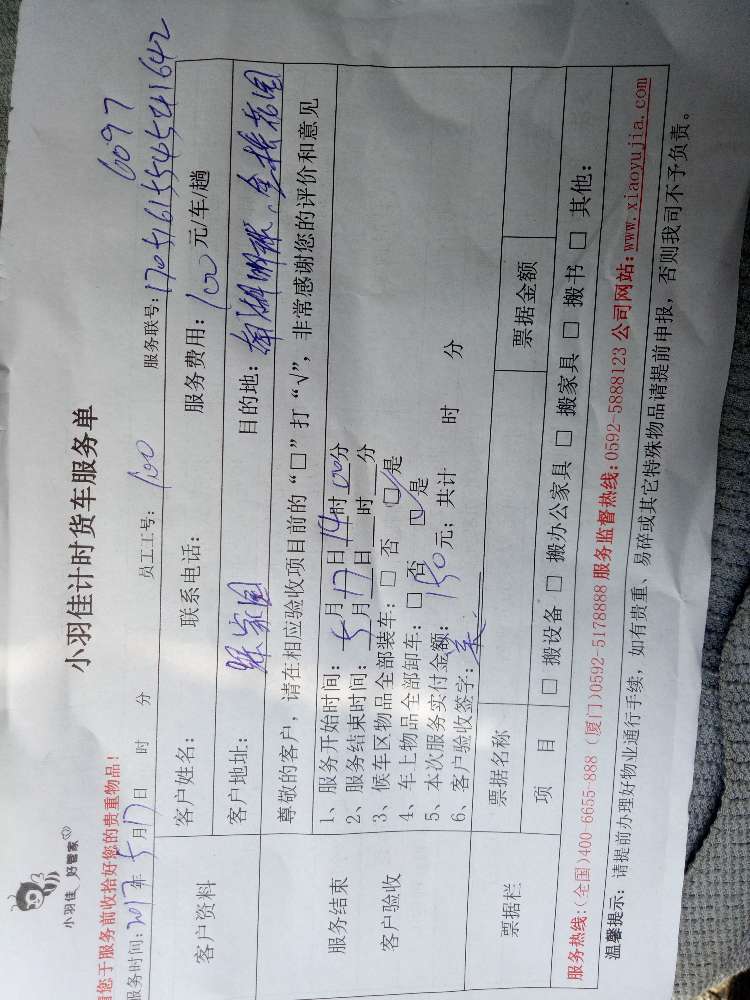 小羽佳 好管家
小羽佳计时货车服务单
请您于服务前收拾好您的贵重物品!
6097
服务时间: 2017年5月17日 时 分 员工工号: 100 服务联号: 170516155454541642
客户资料
客户姓名: 联系电话: 服务费用: 100元/车/趟
客户地址: 张家园 目的地:
服务结束
客户验收
尊敬的客户, 请在相应验收项目前的“□”打“√”, 非常感谢您的评价和意见
1、服务开始时间: 5月17日14时00分
2、服务结束时间: 5月17日 时 分
3、候车区物品全部装车: □ 否 ☑ 是
4、车上物品全部卸车: □ 否 ☑ 是
5、本次服务实付金额: 150元; 共计 时 分
6、客户验收签字:
票据栏
票据名称 票据金额
项 目 □ 搬设备 □ 搬办公家具 □ 搬家具 □ 搬书 □ 其他:
服务热线:(全国)400-6655-888 (厦门)0592-5178888 服务监督热线:0592-5888123 公司网站:www.xiaoyujia.com
温馨提示: 请提前办理好物业通行手续, 如有贵重、易碎或其它特殊物品请提前申报, 否则我司不予负责。